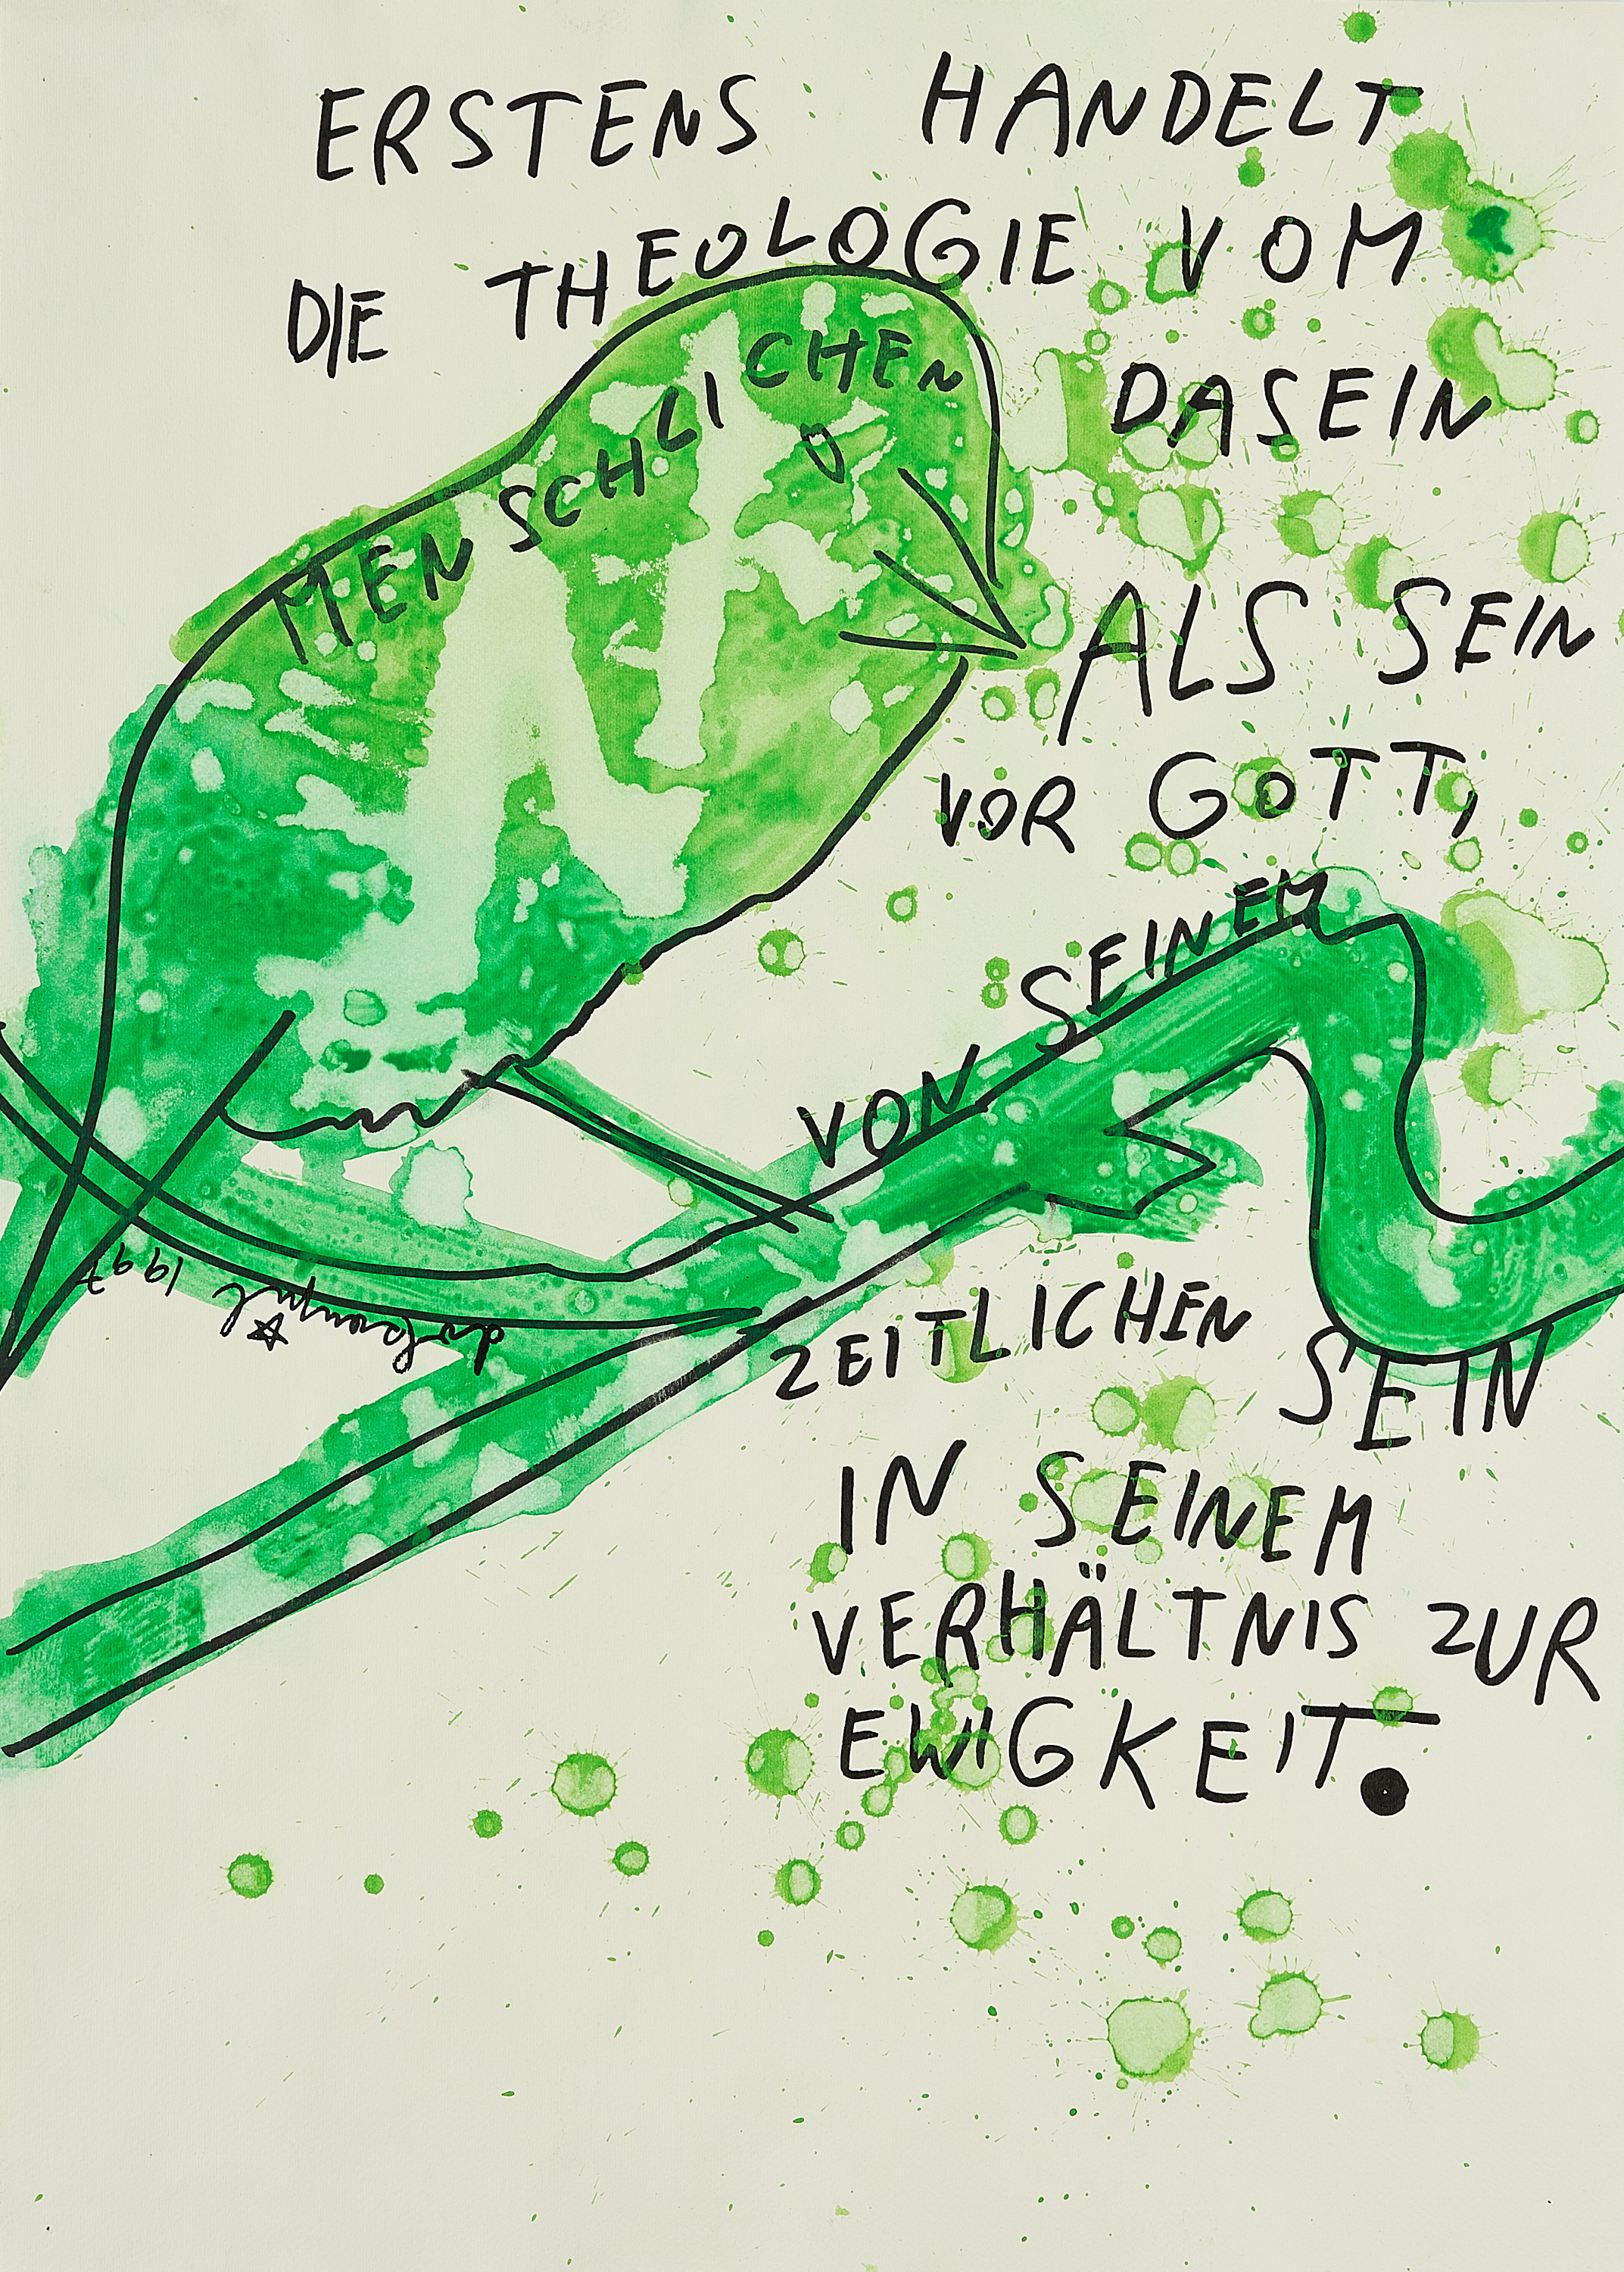 ERSTENS HANDELT
DIE THEOLOGIE VOM
MENSCHLICHEN DASEIN
ALS SEIN
VOR GOTT,
VON SEINEM
ZEITLICHEN SEIN
IN SEINEM
VERHÄLTNIS ZUR
EWIGKEIT.
1997